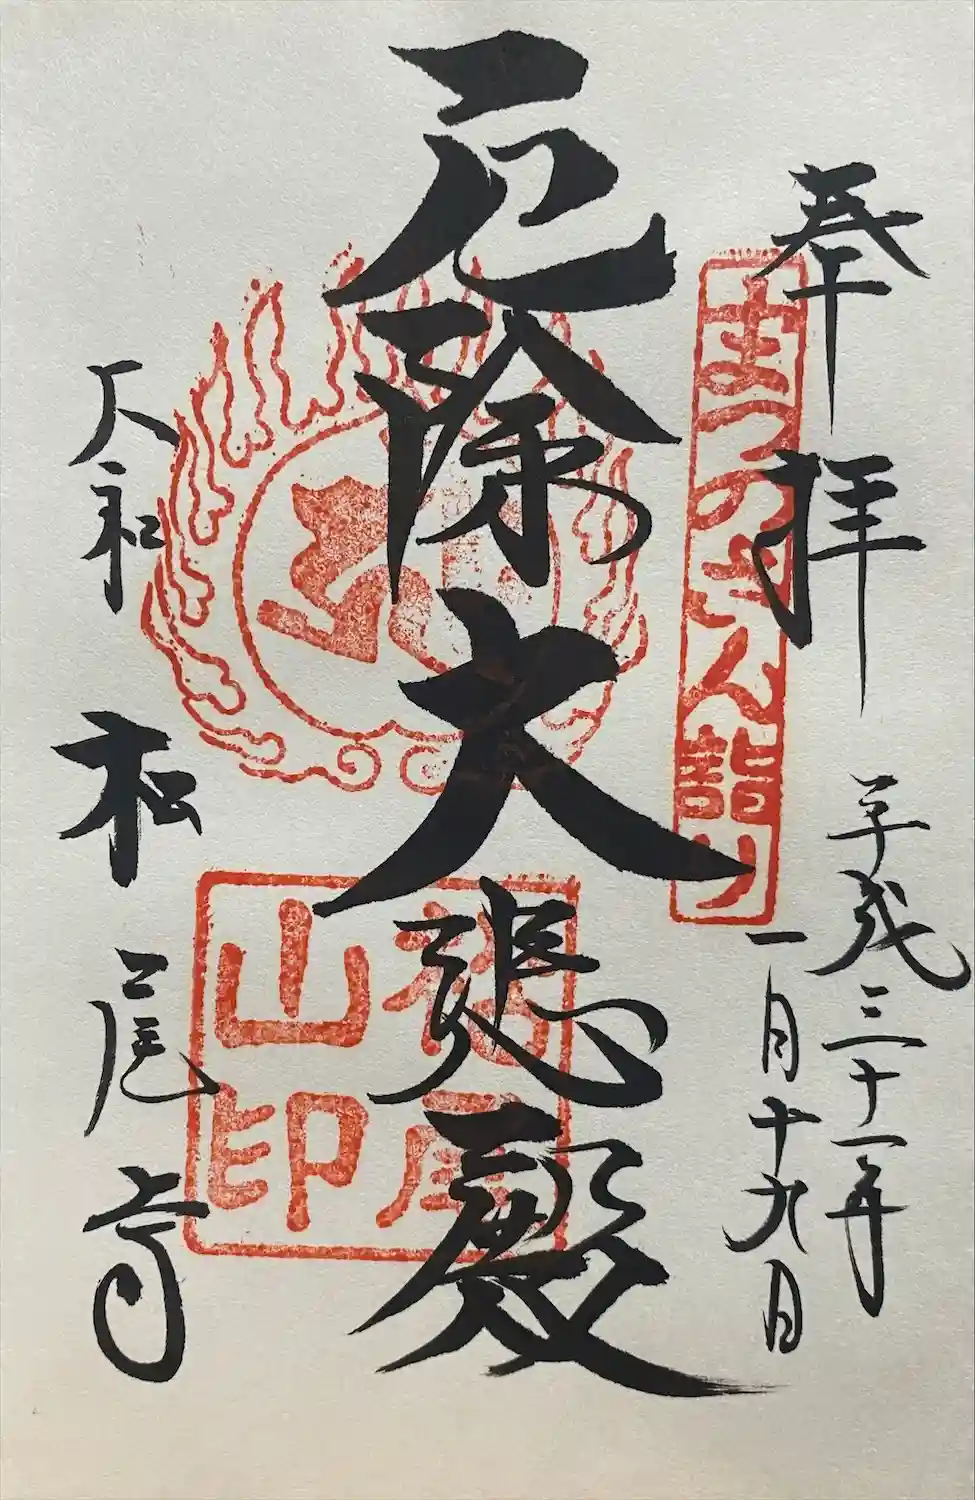 奉拝
まつのおさん詣り
平成三十一年
一月十九日
厄除大悲殿
松尾
山印
大和
松尾寺